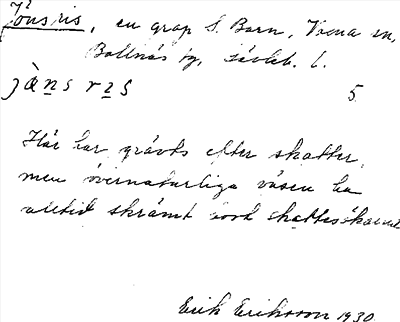 Jönsris, en grop S. Barn, Viena sn,
Bollnäs tg, Gävleb. l.
jà̠ns ri̠s 5
Här har grävts efter skatter,
men övernaturliga väsen ha
alltid skrämt bort skattesökarna
Erik Eriksson 1930